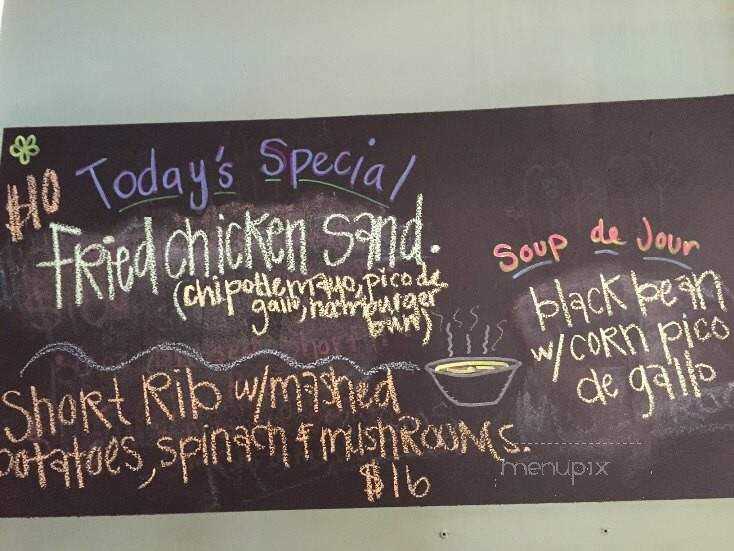 Today's Special
$10
Fried chicken sand.
(chipotle mayo, pico de
gallo, hamburger
bun)
Short Rib w/mashed
potatoes, spinach & mushrooms.
$16
Soup de Jour
black bean
w/corn pico
de gallo
menupix